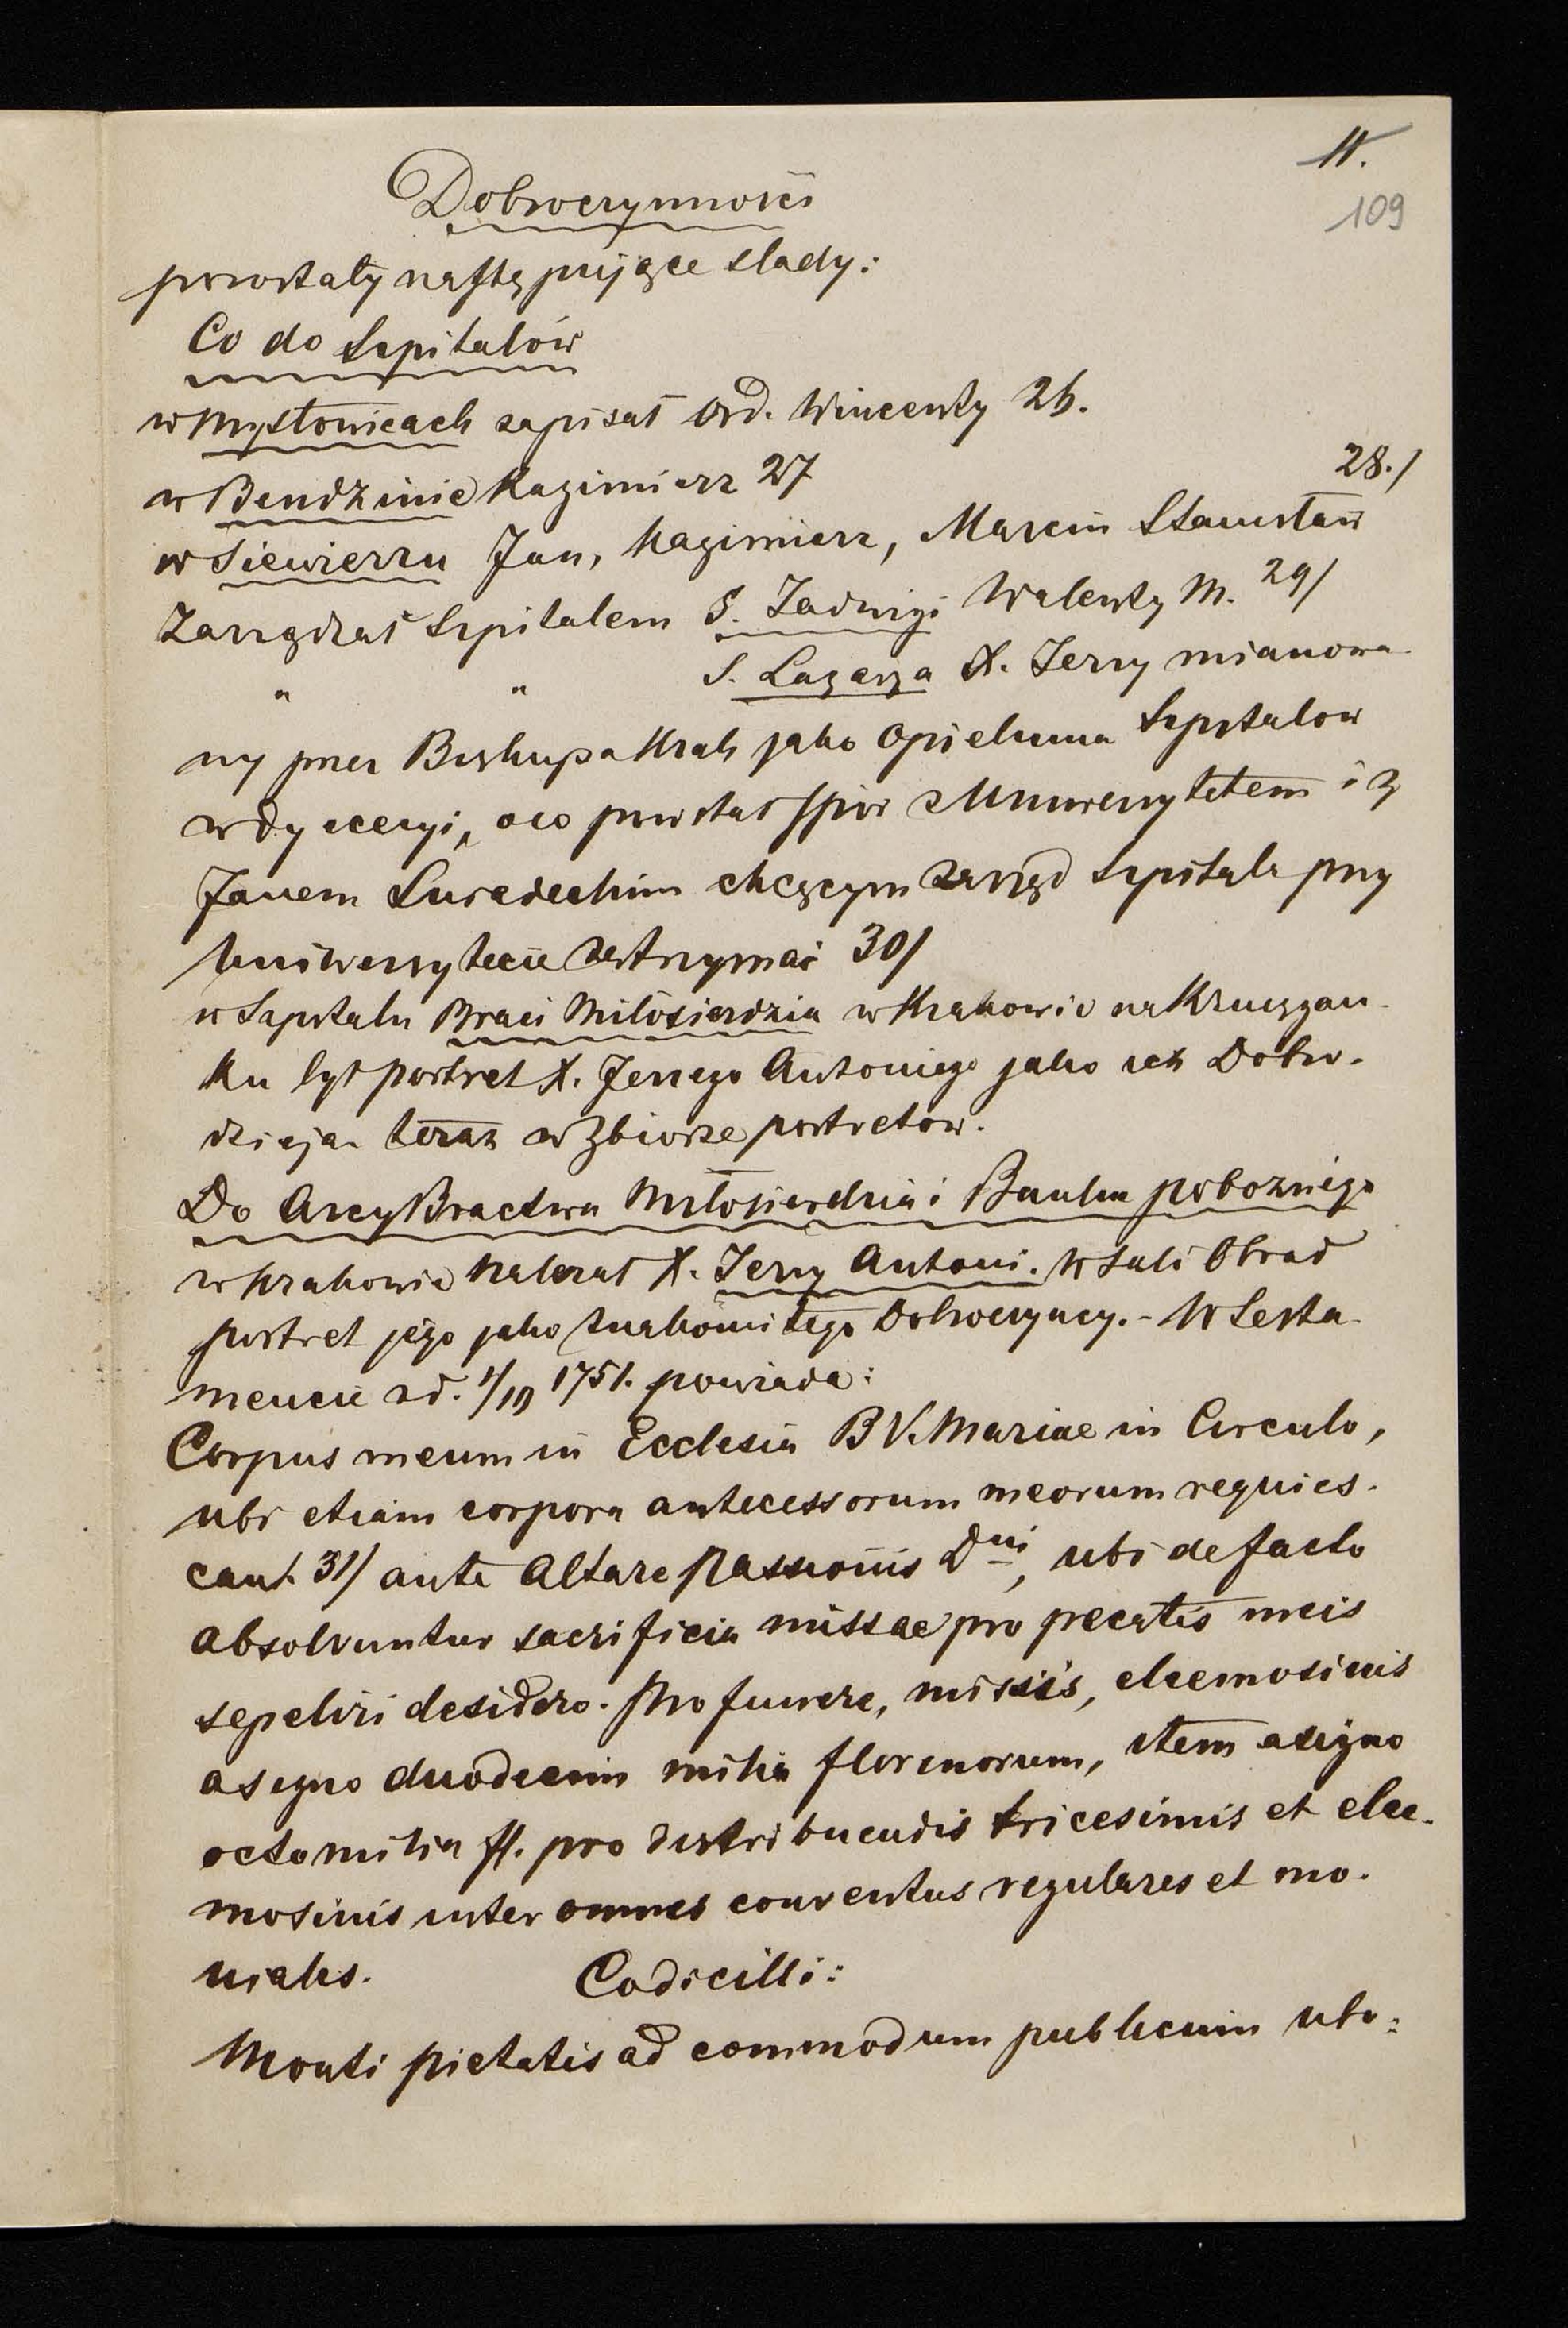 11.
109
Dobroczynności
pozostały następujące slady:
Co do Szpitalów
w Mysłowicach zapisał Ord. Wincenty 26.
w Bendzinie Kazimierz 27
28./
w Siewierzu Jan, Kazimierz, Marcin Stanisław
Zarządzał Szpitalem S. Jadwigi Walenty M. 29/
" " S. Łazarza X. Jerzy mianowa-
ny przez Biskupa Krak jako Opiekuna Szpitalow
w dyecezyi, oco powstał spór z Uniwersytetem i z
Janem chcącym zarząd Szpitala przy
Uniwersytecie zatrzymać 30/
w Szpitalu Braci Miłosierdzia w Krakowie na Kruzgan-
ku był portret X. Jerzego Antoniego jako ich Dobro-
dzieja. teraz w Zbiorze portretów.
Do ArcyBractwa Miłosierdzia i Banku pobożnego
w Krakowie należał X. Jerzy Antoni. W Sali Obrad
portret jego jako znakomitego Dobroczyncy.- W Testa-
mencie zd. 1/10 1751. powiada:
Corpus meum in Ecclesia B V. Mariae in Circulo,
ubi etiam corpora antecessorum meorum requies-
cant. 31/ ante Altare Passionis Dni, ubi de facto
absolvuntur sacrificia missae pro pecatis meis
sepeliri desidero. Pro funere, missis, eleemosinis
asegno duodecim milia florenorum, item asigno
octo milia fl. pro distribuendis tricesimis et elee-
mosinis inter omnes conventus regulares et mo-
niales. Codicilli:
Monti pietatis ad commodum publicum ubo: